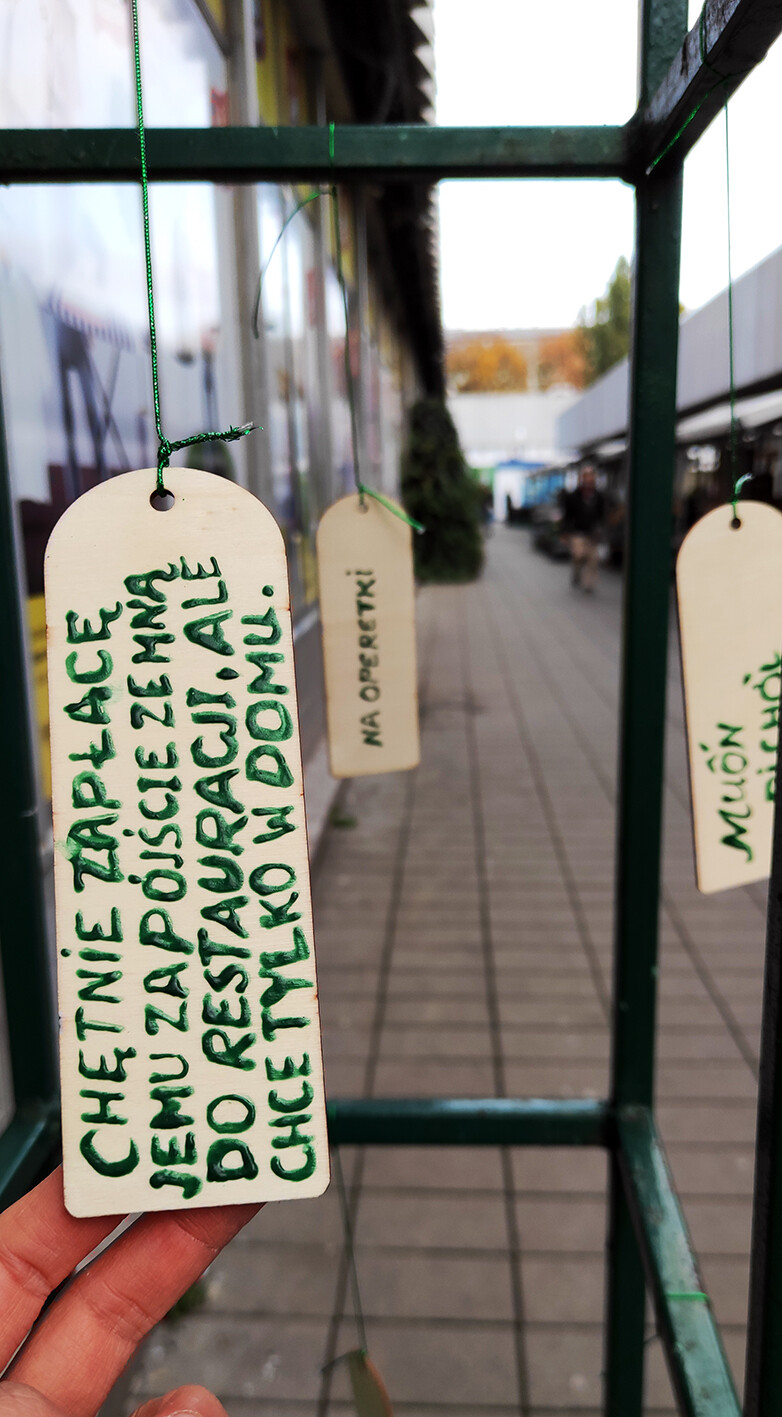 CHĘTNIE ZAPŁACĘ
JEMU ZA PÓJŚCIE ZE MNĄ
DO RESTAURACJI, ALE
CHCE TYLKO W DOMU.
NA OPERETKI
MUÔN